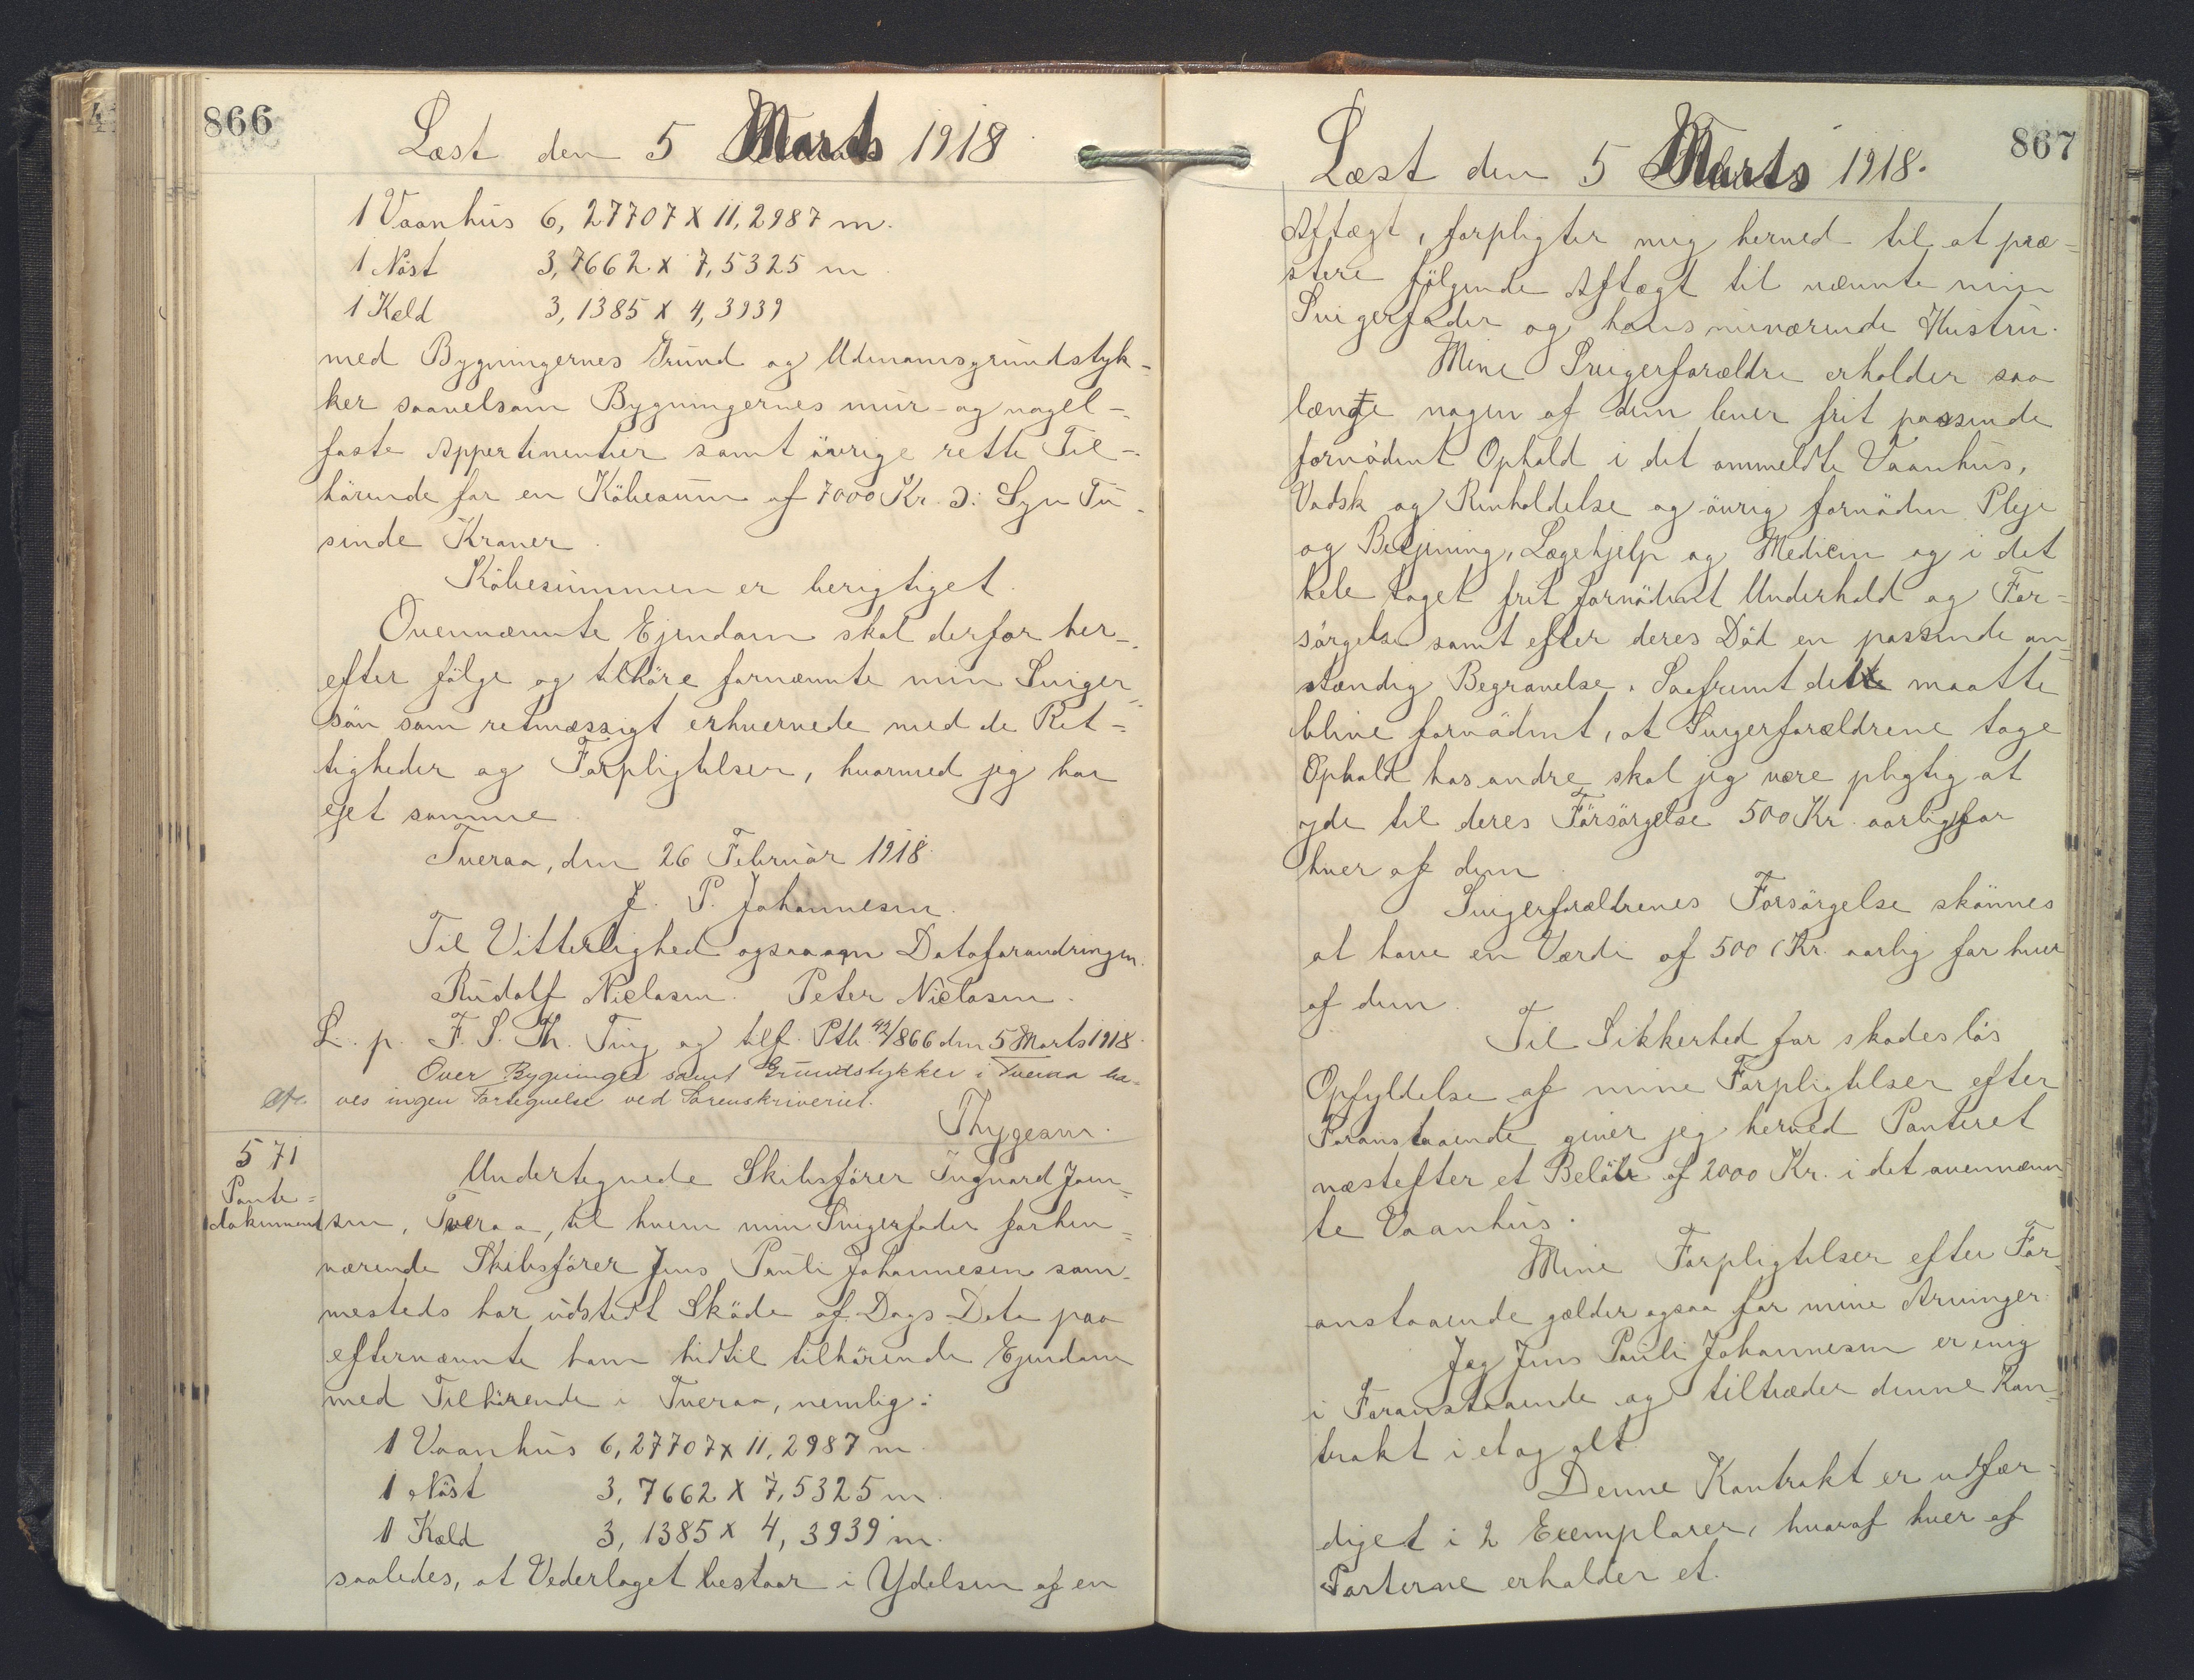 866
Læst den 5 Marts 1918
1 Vaanhus 6,27707 x 11,2987 m.
1 Nöst 3,7662 x 7,5325 m
1 Kæld 3,1385 x 4,3939
med Bygningernes Grund og Udmarksgrundstyk-
ker saavelsom Bygningernes mur- og nagel-
faste Appertinentier samt övrige rette Til-
hörende for en Köbesum af 7000 Kr. ɔ: Syv Tu-
sinde Kroner.
Köbesummen er berigtiget.
Ovennævnte Ejendom skal derfor her-
efter fölge og tilhöre fornævnte min Sviger-
sön som retmæssigt erhvervede med de Ret-
tigheder og Forpligtelser, hvormed jeg har
ejet samme.
Tveraa, den 26 Februar 1918.
J. P. Johannesen.
Til Vitterlighed ogsaa om Datoforandringen.
Rudolf Niclasen. Peter Niclasen.
L. p. F. S. Th. Ting og tilf. Ptb. 42/866 den 5 Marts 1918.
Over Bygninger samt Grundstykker i Tveraa ha-
ves ingen Fortegnelse ved Sorenskriveriet.
Thygesen.
571
Pante-
dokument
Undertegnede Skibsförer Ingvard Joen-
sen, Tveraa, til hvem min Svigerfader forhen-
værende Skibsförer Jens Pauli Johannesen sam-
mesteds har udstedt Sköde af Dags Dato paa
efternævnte ham hidtil tilhörende Ejendom
med Tilhörende i Tveraa, nemlig:
1 Vaanhus 6,27707 x 11,2987 m.
1 Nöst 3,7662 x 7,5325 m.
1 Kæld 3,1385 x 4,3939 m.
saaledes, at Vederlaget bestaar i Ydelsen af en
867
Læst den 5 Marts 1918.
Aftægt, forpligter mig herved til at præ-
stere fölgende Aftægt til nævnte min
Svigerfader og hans nuværende Hustru.
Mine Svigerforældre erholder saa
længe nogen af dem lever frit passende
fornödent Ophold i det ommeldte Vaanhus,
Vadsk og Renholdelse og övrig fornöden Pleje
og Betjening, Lægehjelp og Medicin og i det
hele taget frit fornödent Underhold og For-
sörgelse samt efter deres Död en passende an-
stændig Begravelse. Saafremt det maatte
blive fornödent, at Svigerforældrene tage
Ophold hos andre skal jeg være pligtig at
yde til deres Forsörgelse 500 Kr. aarlig for
hver af dem.
Svigerforældrenes Forsörgelse skönnes
at have en Værdi af 500 Kr. aarlig for hver
af dem.
Til Sikkerhed for skadeslös
Opfyldelse af mine Forpligtelser efter
Foranstaaende giver jeg herved Panteret
næstefter et Belöb af 2000 Kr. i det ovennævn-
te Vaanhus.
Mine Forpligtelser efter For-
anstaaende gælder ogsaa for mine Arvinger.
Jeg Jens Pauli Johannesen er enig
i Foranstaaende og tiltræder denne Kon-
trakt i et og alt.
Denne Kontrakt er udfær-
diget i 2 Exemplarer, hvoraf hver af
Parterne erholder et.